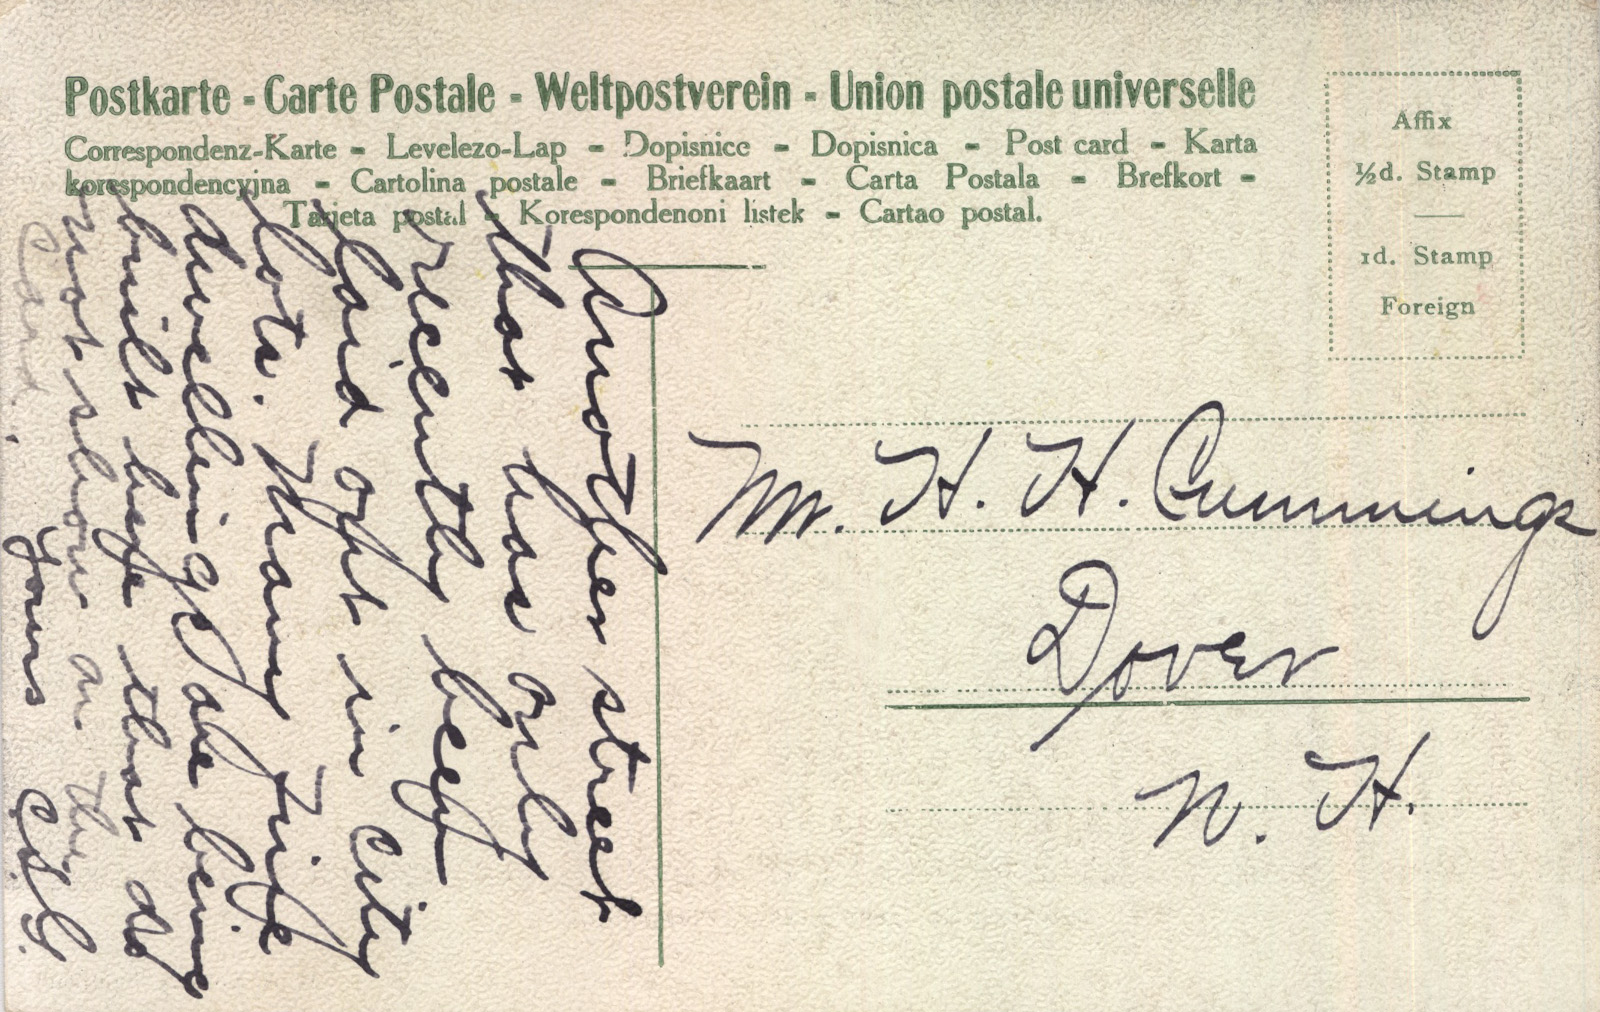 Postkarte - Carte Postale - Weltpostverein - Union postale universelle
Correspondenz-Karte - Levelezo-Lap - Dopisnice - Dopisnica - Post card - Karta
korespondencyjna - Cartolina postale - Briefkaart - Carta Postala - Brefkort -
Tarjeta postal - Korespondenoni listek - Cartao postal.
Affix
½d. Stamp
1d. Stamp
Foreign
Another street
that has only
recently been
laid out in city
lots. Many fine
dwellings are being
built here that do
not show on this
Card.
Yours C.S.G.
Mr. H. H. Cummings
Dover
N. H.